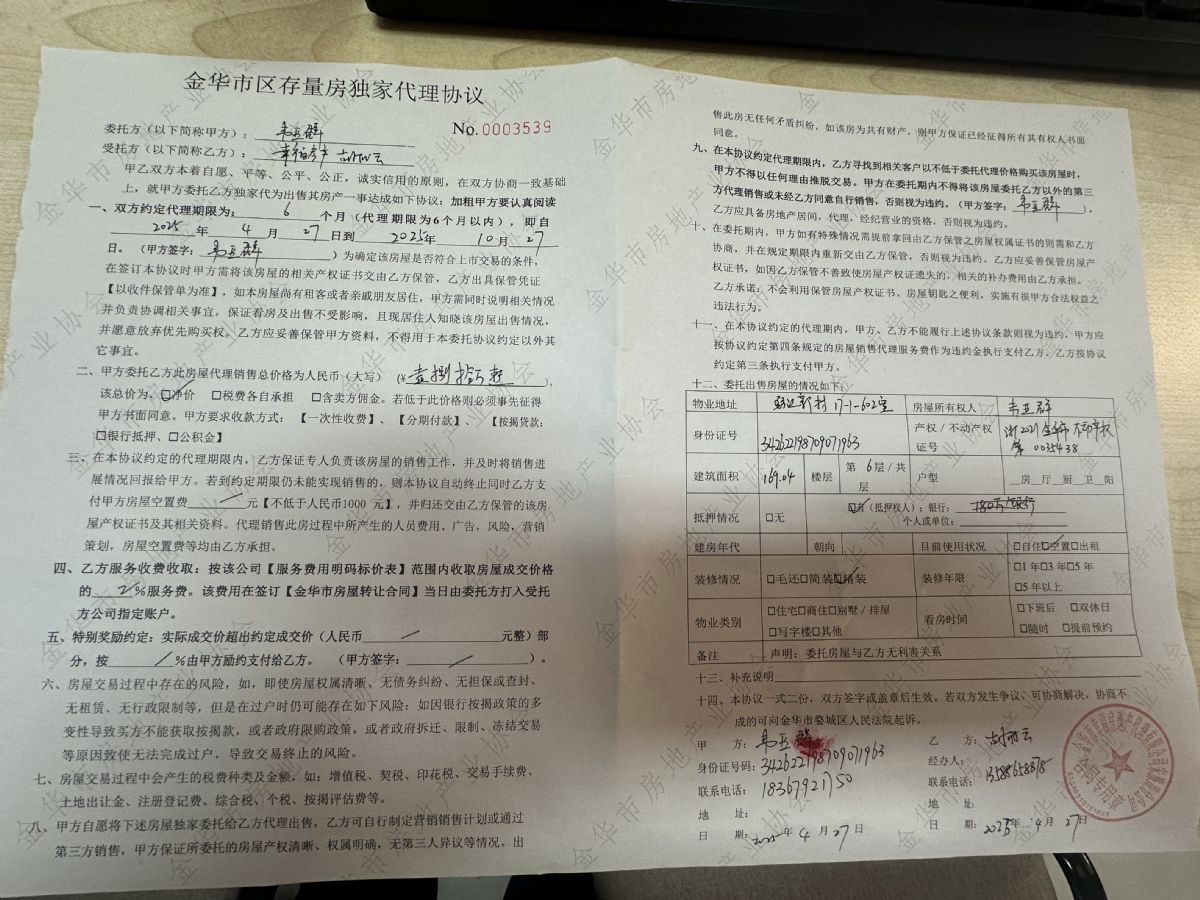 金华市区存量房独家代理协议
No.0003539
委托方（以下简称甲方）：韦亚群
受托方（以下简称乙方）：幸福房产
甲乙双方本着自愿、平等、公平、公正，诚实信用的原则，在双方协商一致基础
上，就甲方委托乙方独家代为出售其房产一事达成如下协议：加粗甲方要认真阅读
一、双方约定代理期限为：6个月（代理期限为6个月以内），即自
2025年4月27日到2025年10月27
日。（甲方签字：韦亚群）为确定该房屋是否符合上市交易的条件，
在签订本协议时甲方需将该房屋的相关产权证书交由乙方保管，乙方出具保管凭证
【以收件保管单为准】，如本房屋尚有租客或者亲戚朋友居住，甲方需同时说明相关情况
并负责协调相关事宜，保证看房及出售不受影响，且现居住人知晓该房屋出售情况，
并愿意放弃优先购买权。乙方应妥善保管甲方资料，不得用于本委托协议约定以外其
它事宜。
二、甲方委托乙方此房屋代理销售总价格为人民币（大写）（¥壹捌拾万），
该总价为、☑净价 □税费各自承担 □含卖方佣金。若低于此价格则必须事先征得
甲方书面同意。甲方要求收款方式：【一次性收费】、【分期付款】、【按揭贷款：
□银行抵押、□公积金】
三、在本协议约定的代理期限内，乙方保证专人负责该房屋的销售工作，并及时将销售进
展情况回报给甲方。若到约定期限仍未能实现销售的，则本协议自动终止同时乙方支
付甲方房屋空置费／元【不低于人民币1000 元】，并归还交由乙方保管的该房
屋产权证书及其相关资料。代理销售此房过程中所产生的人员费用、广告，风险，营销
策划，房屋空置费等均由乙方承担。
四、乙方服务收费收取：按该公司【服务费用明码标价表】范围内收取房屋成交价格
的2%服务费。该费用在签订【金华市房屋转让合同】当日由委托方打入受托
方公司指定账户。
五、特别奖励约定：实际成交价超出约定成交价（人民币／元整）部
分，按／%由甲方励约支付给乙方。（甲方签字：／）。
六、房屋交易过程中存在的风险，如，即使房屋权属清晰、无债务纠纷、无担保或查封、
无租赁、无行政限制等，但是在过户时仍可能存在如下风险：如因银行按揭政策的多
变性导致买方不能获取按揭款，或者政府限购政策，或者政府拆迁、限制、冻结交易
等原因致使无法完成过户，导致交易终止的风险。
七、房屋交易过程中会产生的税费种类及金额，如：增值税、契税、印花税、交易手续费、
土地出让金、注册登记费、综合税、个税、按揭评估费等。
八、甲方自愿将下述房屋独家委托给乙方代理出售，乙方可自行制定营销销售计划或通过
第三方销售，甲方保证所委托的房屋产权清晰、权属明确，无第三人异议等情况。出
售此房无任何矛盾纠纷，如该房为共有财产，则甲方保证已经征得所有其有权人书面
同意。
九、在本协议约定代理期限内，乙方寻找到相关客户以不低于委托代理价格购买该房屋时，
甲方不得以任何理由推脱交易。甲方在委托期内不得将该房屋委托乙方以外的第三
方代理销售或未经乙方同意自行销售，否则视为违约。（甲方签字：韦亚群）。
乙方应具备房地产居间，代理，经纪营业的资格，否则视为违约。
十、在委托期内，甲方如有特殊情况需提前拿回由乙方保管之房屋权属证书的则需和乙方
协商，并在规定期限内重新交由乙方保管，否则视为违约。乙方应妥善保管房屋产
权证书，如因乙方保管不善致使房屋产权证遗失的，相关的补办费用由乙方承担。
乙方承诺：不会利用保管房屋产权证书、房屋钥匙之便利，实施有损甲方合法权益之
违法行为。
十一、在本协议约定的代理期内，甲方、乙方不能履行上述协议条款则视为违约，甲方应
按协议约定第四条规定的房屋销售代理服务费作为违约金执行支付乙方。乙方按协议
约定第三条执行支付甲方。
十二、委托出售房屋的情况如下：
物业地址 新村17-1-602室 房屋所有权人 韦亚群
身份证号 342622198709071963 产权/不动产权证号 浙2021金华市不动产权第0035438
建筑面积 169.04 楼层 第6层/共 层 户型 __房__厅__厨__卫__阳
抵押情况 □无 ☑有（抵押权人）：银行：180万
个人或单位：
建房年代 朝向 目前使用状况 □自住☑空置□出租
装修情况 □毛还□简装☑精装 装修年限 □1年□3年□5年
□5年以上
物业类别 □住宅□商住□别墅/排屋 看房时间 □下班后 □双休日
□写字楼□其他 □随时 □提前预约
备注 声明：委托房屋与乙方无利害关系
十三、补充说明
十四、本协议一式二份，双方签字或盖章后生效。若双方发生争议，可协商解决，协商不
成的可向金华市婺城区人民法院起诉。
甲 方：韦亚群
身份证号码：342622198709071963
联系电话：18367921750
地 址：
日 期：2025年4月27日
乙 方：
经办人：
联系电话：13588658878
地 址：
日 期：2025年4月27日
合同专用章
金华市房地产业协会